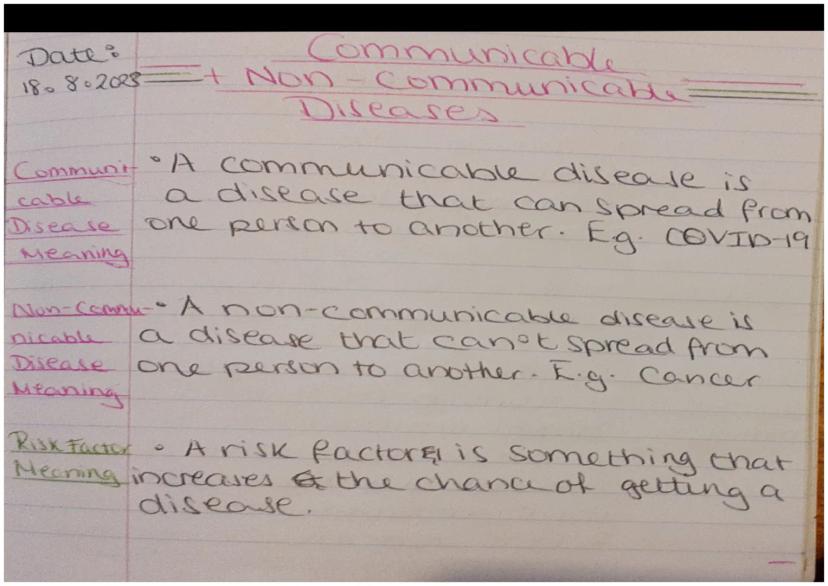 Date:
18.8.2023
Communicable
+ Non-Communicable
Diseases
Communi-
cable
Disease
Meaning
• A communicable disease is
a disease that can spread from
one person to another. Eg. COVID-19
Non-Commu-
nicable
Disease
Meaning
• A non-communicable disease is
a disease that can't spread from
one person to another. E.g. Cancer
Risk Factor
Meaning
• A risk factor is something that
increases the chance of getting a
disease.